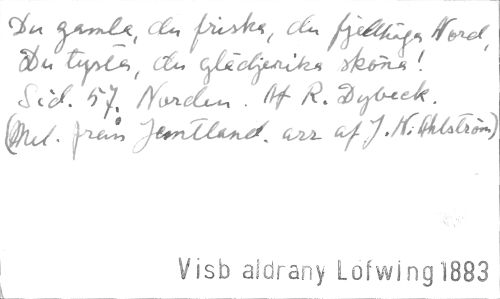 Du gamla, du friska, du fjellhöga Nord,
Du tysta, du glädjerika sköna!
Sid. 57. Norden. Af R. Dybeck.
(Mel. från Jemtland. arr af J. N. Ahlström)
Visb aldrany Löfwing 1883